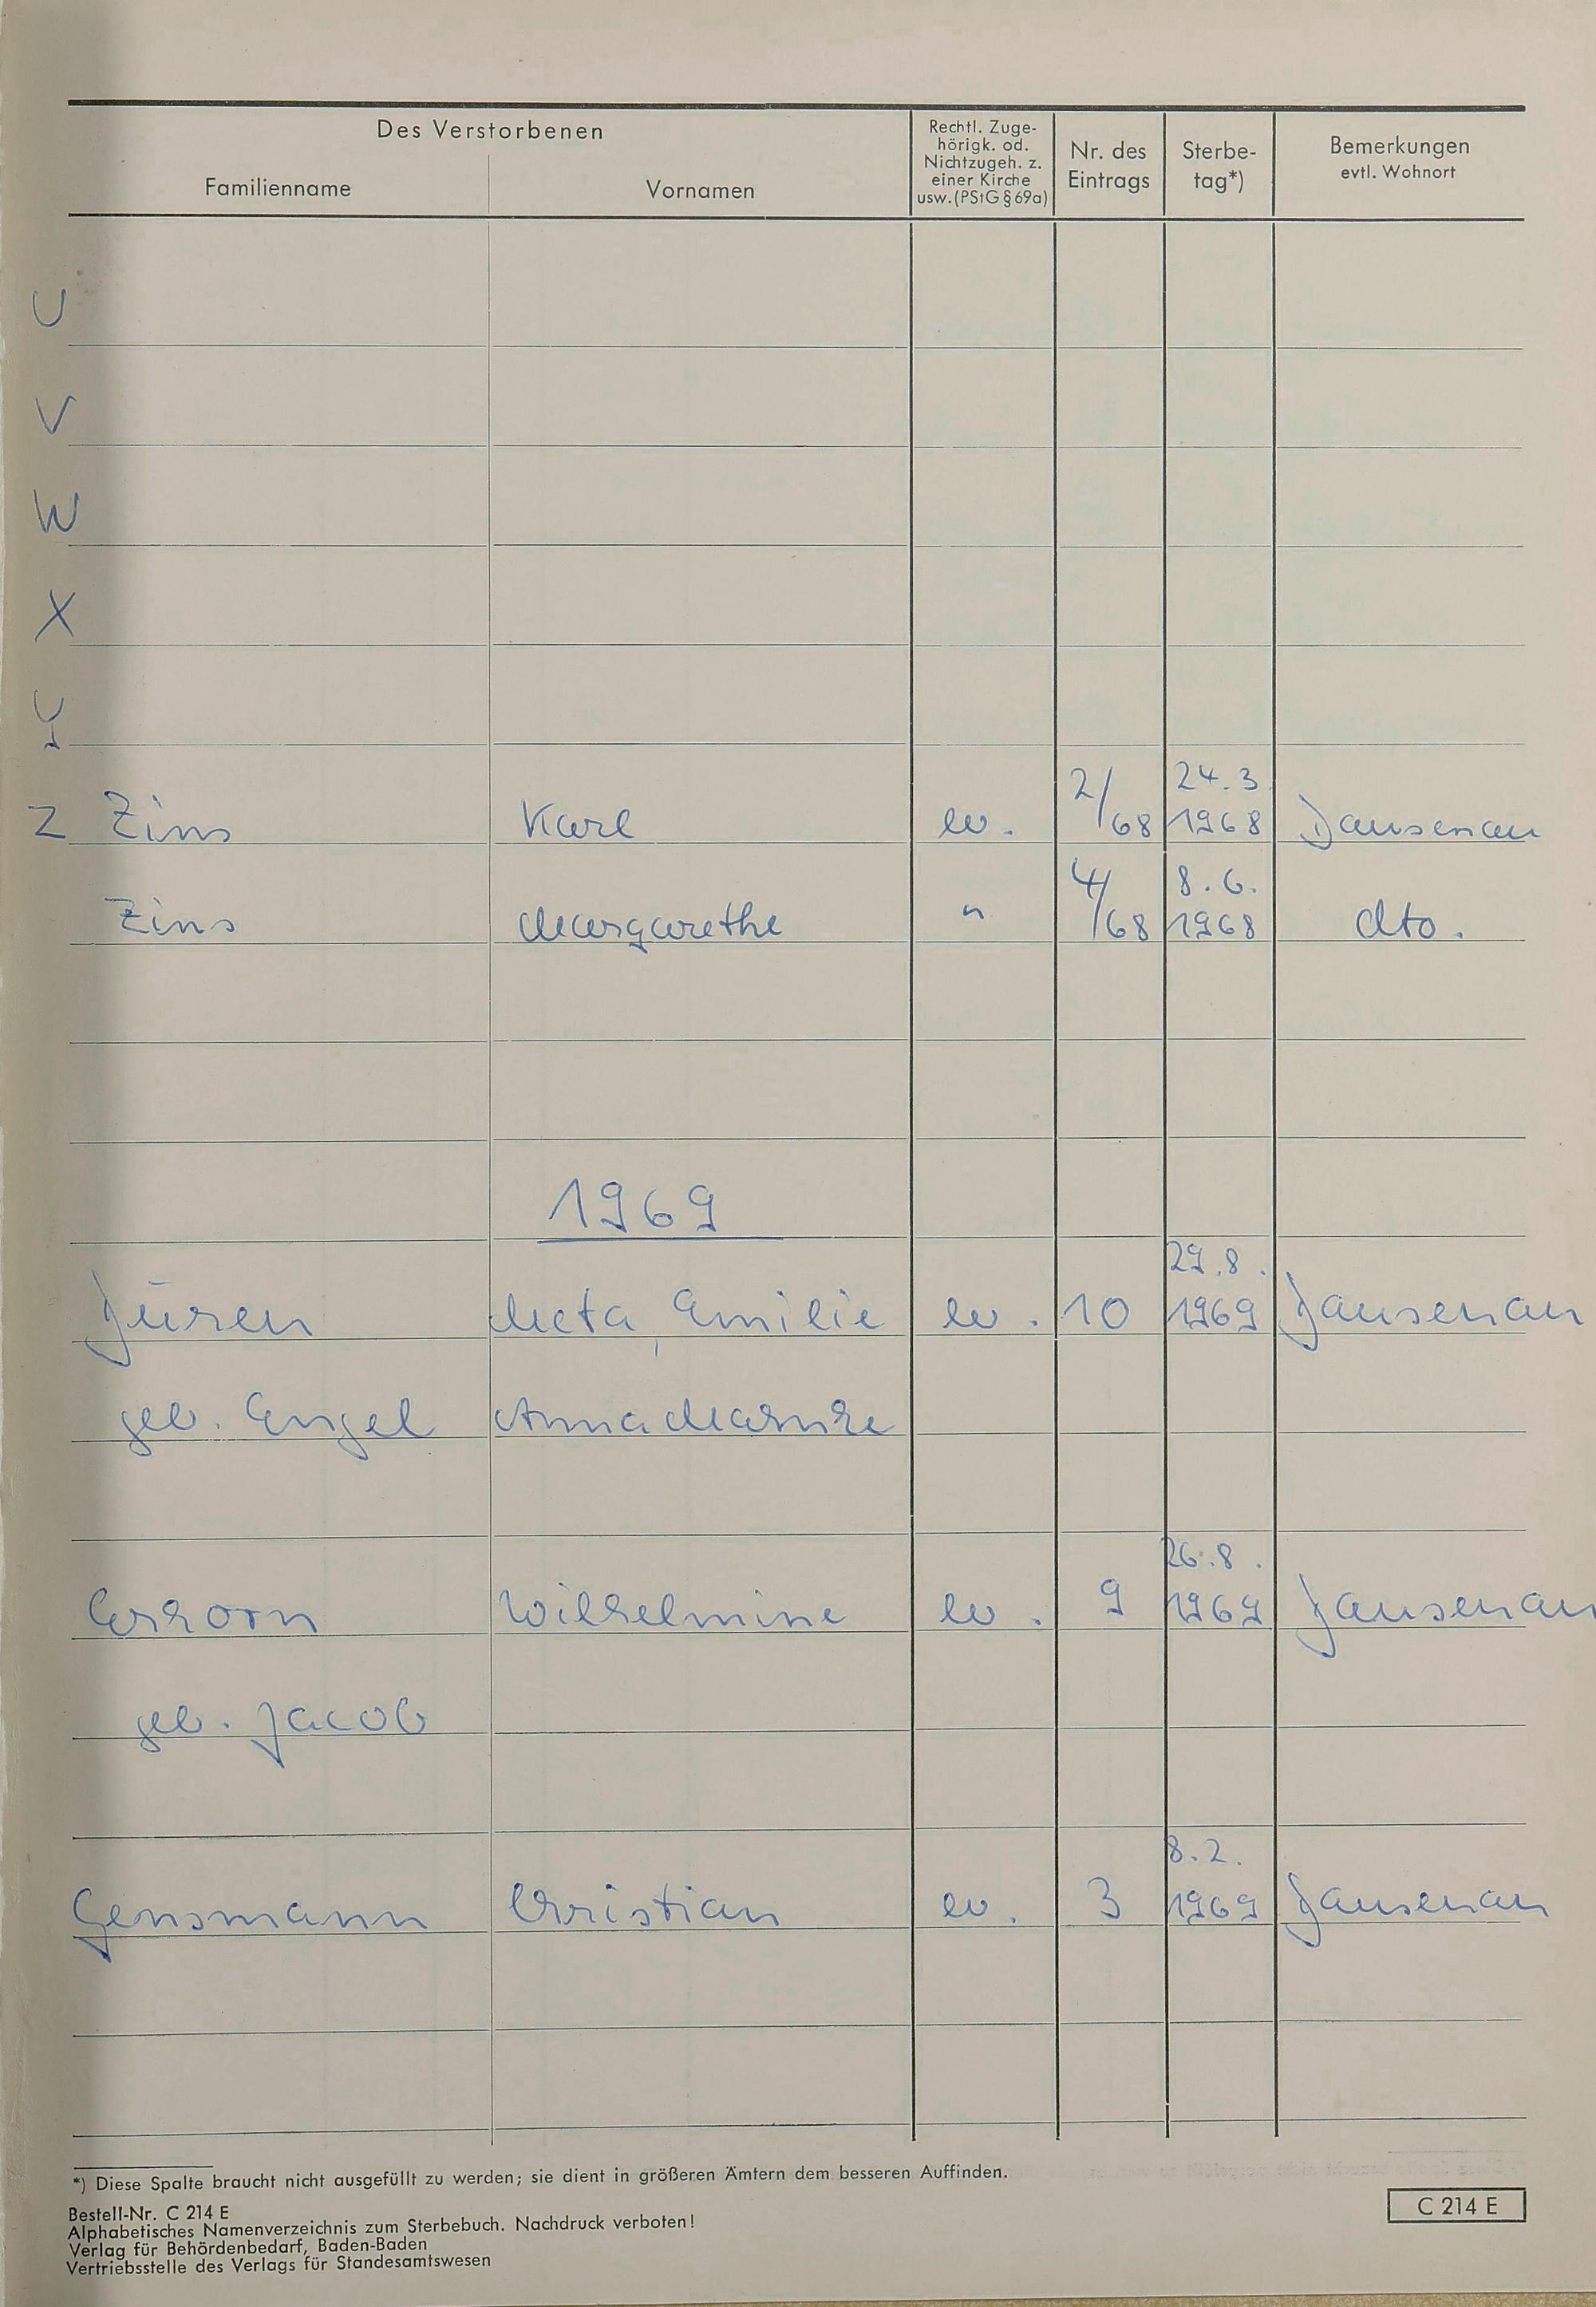 Des Verstorbenen
Familienname Vornamen
Rechtl. Zuge-
hörigk. od.
Nichtzugeh. z.
einer Kirche
usw. (PStG § 69a)
Nr. des
Eintrags
Sterbe-
tag*)
Bemerkungen
evtl. Wohnort
U
V
W
X
Y
2/ 24.3.
Z Zins Karl ev. 68 1968 Dausenau
4/ 8.6.
Zins Margarethe " 68 1968 dto.
1969
29.8.
Düren Meta, Emilie ev. 10 1969 Dausenau
geb. Engel Anna
26.8.
Wilhelmine ev. 9 1969 Dausenau
geb. Jacob
8.2.
Gensmann Christian ev. 3 1969 Dausenau
*) Diese Spalte braucht nicht ausgefüllt zu werden; sie dient in größeren Ämtern dem besseren Auffinden.
Bestell-Nr. C 214 E
Alphabetisches Namenverzeichnis zum Sterbebuch. Nachdruck verboten!
Verlag für Behördenbedarf, Baden-Baden
Vertriebsstelle des Verlags für Standesamtswesen
C 214 E